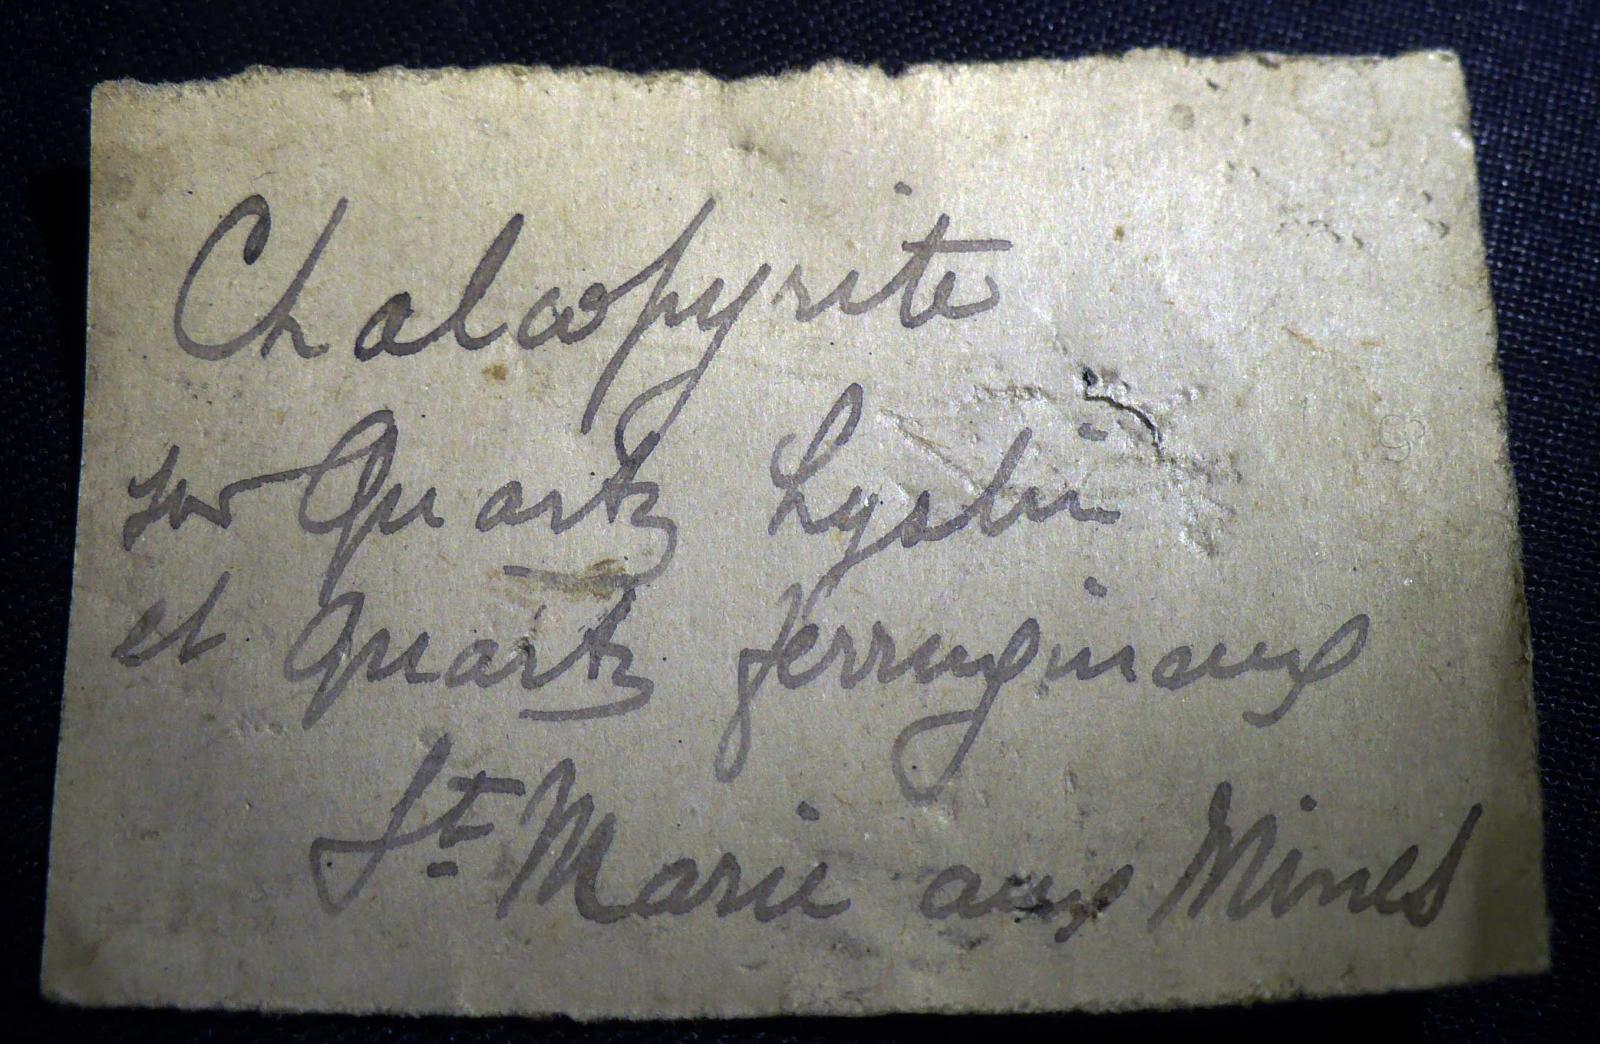 Chalcopyrite
sur Quartz hyalin
et Quartz ferrugineux
St Marie aux Mines